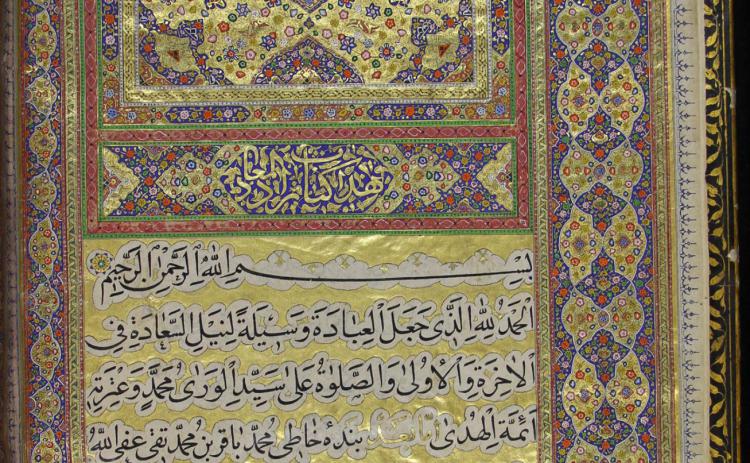 هذا كتاب زاد المعاد
بِسْمِ اللهِ الرَّحْمٰنِ الرَّحِيْمِ
اَلْحَمْدُ لِلّٰهِ الَّذى جَعَلَ الْعِبادَةَ وَسيلَةً لِنَيْلِ السَّعادَةِ فِى
الْاخِرَةِ وَالْاُولىٰ وَالصَّلوٰةُ عَلىٰ سَيِّدِ الْوَرىٰ مُحَمَّدٍ وَعِتْرَتِه
اَئِمَّةِ الْهُدىٰ اَمّا بَعْدُ بنده خاطى محمّد باقر بن محمّد تقى عفى الله